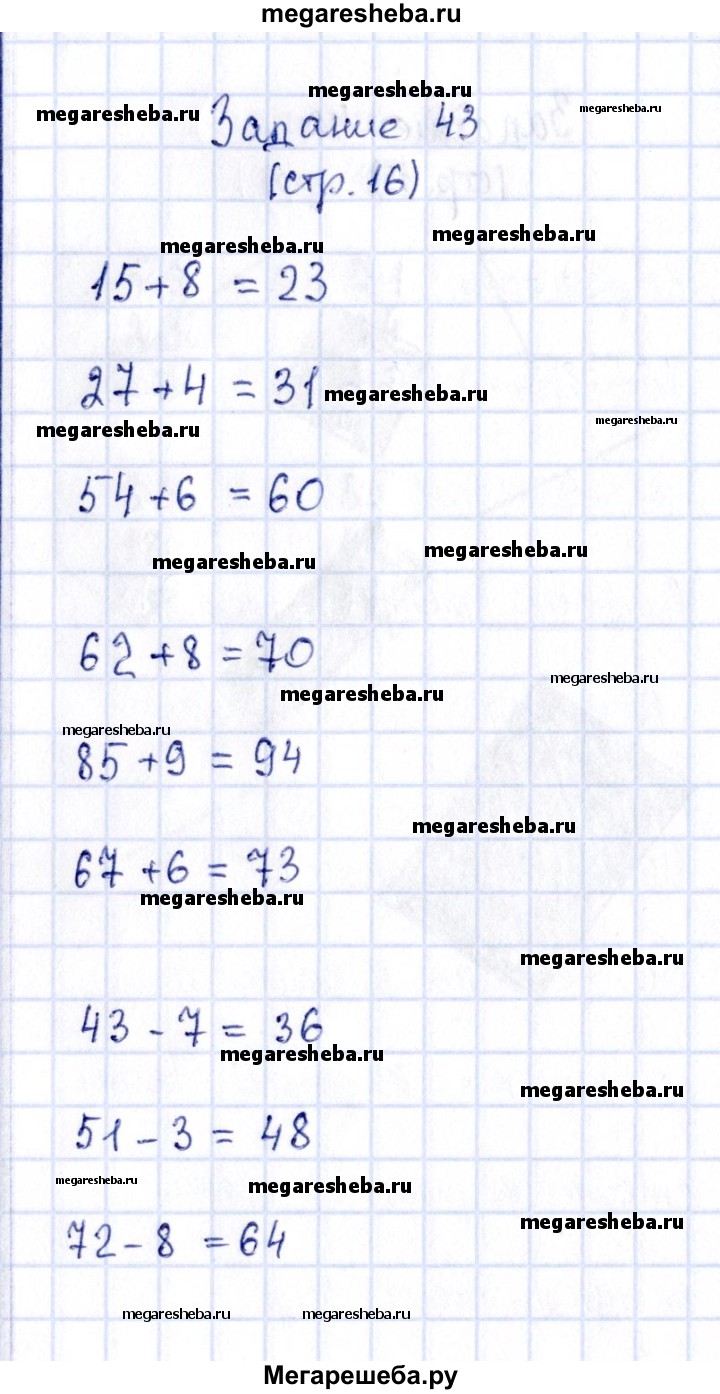 megaresheba.ru
megaresheba.ru
megaresheba.ru
megaresheba.ru
Задание 43
(стр. 16)
megaresheba.ru
megaresheba.ru
15+8 = 23
27+4 = 31
megaresheba.ru
megaresheba.ru
megaresheba.ru
54+6 = 60
megaresheba.ru
megaresheba.ru
62+8 = 70
megaresheba.ru
megaresheba.ru
megaresheba.ru
85+9 = 94
megaresheba.ru
67+6 = 73
megaresheba.ru
megaresheba.ru
43-7 = 36
megaresheba.ru
megaresheba.ru
51-3 = 48
megaresheba.ru
megaresheba.ru
megaresheba.ru
72-8 = 64
megaresheba.ru
megaresheba.ru
Мегарешеба.ру